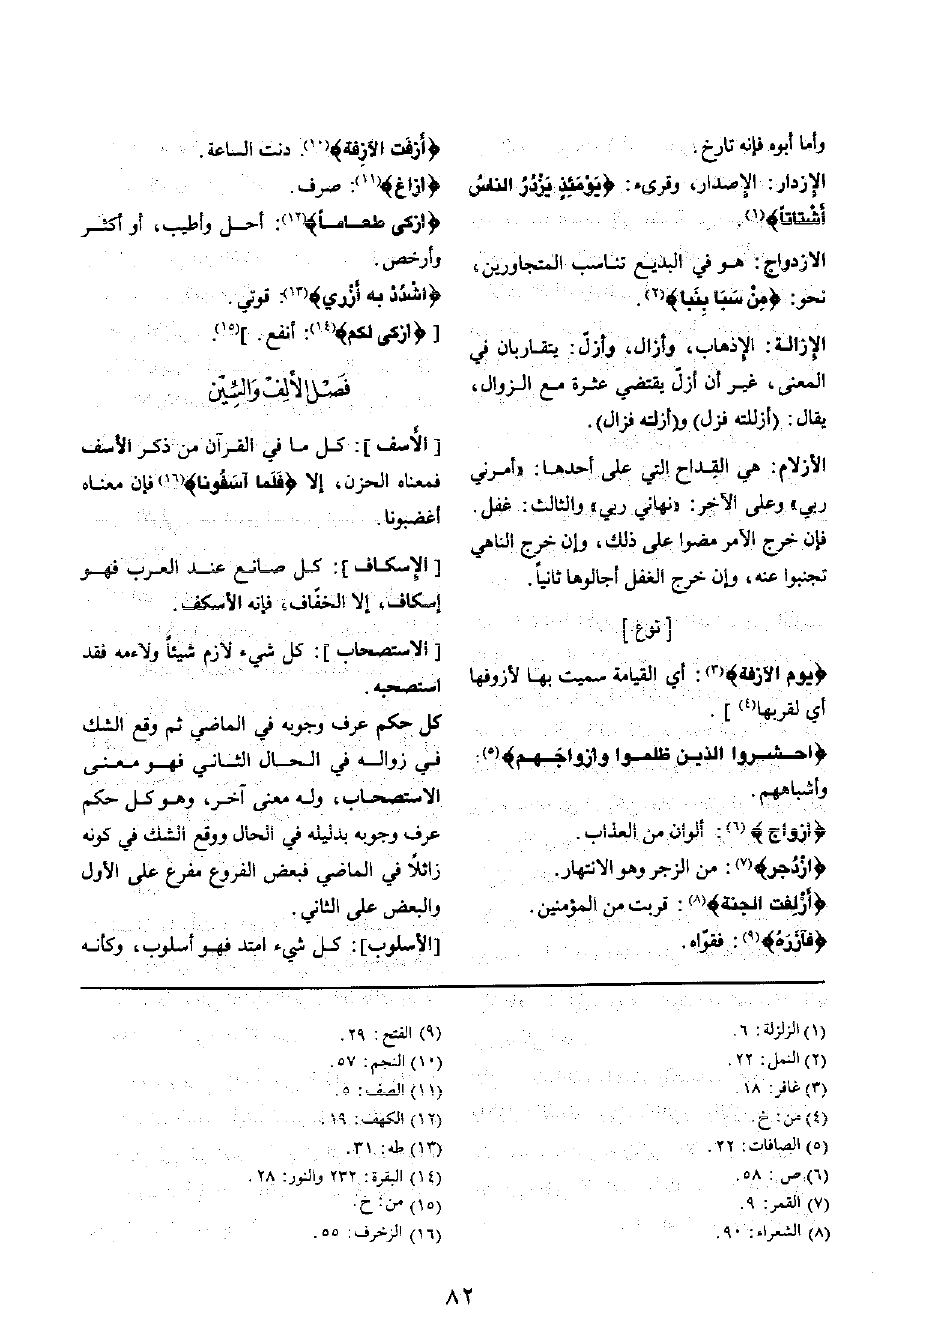 وأما أبوه فإنه تارخ.
الإزدار: الإصدار، وقرىء: ﴿يَوْمَئِذٍ يَزْدُرُ الناسُ
أَشْتاتاً﴾(١).
الازدواج: هو في البديع تناسب المتجاورين،
نحو: ﴿مِنْ سَبَإ بِنَبإ﴾(٢).
الإزالة: الإذهاب، وأزال، وأزلّ: يتقاربان في
المعنى، غير أن أزلّ يقتضي عثرة مع الزوال،
يقال: (أزللته فزل) و(أزلته فزال).
الأزلام: هي القِداح التي على أحدها: «أمرني
ربي» وعلى الآخر: «نهاني ربي» والثالث: غفل.
فإن خرج الأمر مضوا على ذلك، وإن خرج الناهي
تجنبوا عنه، وإن خرج الغفل أجالوها ثانياً.
[نوع]
﴿يوم الآزفة﴾(٣): أي القيامة سميت بها لأزوفها
أي لقربها(٤) ].
﴿احشروا الذين ظلموا وأزواجهم﴾(٥):
وأشباههم.
﴿أزواج﴾(٦): ألوان من العذاب.
﴿ازْدُجر﴾(٧): من الزجر وهو الانتهار.
﴿أُزْلِفت الجنة﴾(٨): قربت من المؤمنين.
﴿فآزَرَهُ﴾(٩): فقوّاه.
﴿أَزِفَت الآزِفة﴾(١٠): دنت الساعة.
﴿أزاغ﴾(١١): صرف.
﴿أزكى طعاماً﴾(١٢): أحل وأطيب، أو أكثر
وأرخص.
﴿اشْدُدْ به أَزْري﴾(١٣): قوتي.
[ ﴿أزكى لكم﴾(١٤): أنفع. ](١٥).
فَصْل الألِف وَالسِّين
[ الأَسف ]: كل ما في القرآن من ذكر الأسف
فمعناه الحزن، إلا ﴿فَلَما آسَفُونا﴾(١٦) فإن معناه
أغضبونا.
[ الإسكاف ]: كل صانع عند العرب فهو
إسكاف، إلا الخفّاف، فإنه الأسكف.
[ الاستصحاب ]: كل شيء لازم شيئاً ولاءمه فقد
استصحبه.
كل حكم عرف وجوبه في الماضي ثم وقع الشك
في زواله في الحال الثاني فهو معنى
الاستصحاب، وله معنى آخر، وهو كل حكم
عرف وجوبه بدليله في الحال ووقع الشك في كونه
زائلاً في الماضي فبعض الفروع مفرع على الأول
والبعض على الثاني.
[الأسلوب]: كل شيء امتد فهو أسلوب، وكأنه
(١) الزلزلة: ٦.
(٢) النمل: ٢٢.
(٣) غافر: ١٨.
(٤) من: خ.
(٥) الصافات: ٢٢.
(٦) ص: ٥٨.
(٧) القمر: ٩.
(٨) الشعراء: ٩٠.
(٩) الفتح: ٢٩.
(١٠) النجم: ٥٧.
(١١) الصف: ٥.
(١٢) الكهف: ١٩.
(١٣) طه: ٣١.
(١٤) البقرة: ٢٣٢ والنور: ٢٨.
(١٥) من: خ.
(١٦) الزخرف: ٥٥.
٨٢